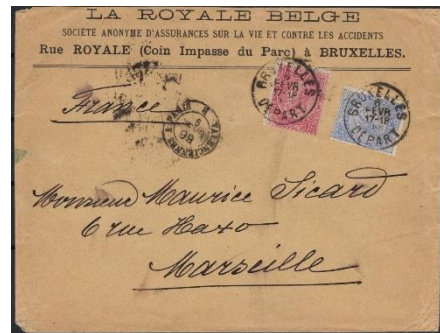 LA ROYALE BELGE
SOCIÉTÉ ANONYME D'ASSURANCES SUR LA VIE ET CONTRE LES ACCIDENTS
Rue ROYALE (Coin Impasse du Parc) à BRUXELLES.
France
BRUXELLES
6
FEVR
17-18
DEPART
BRUXELLES
6
FEVR
17-18
DEPART
VALENCIENNES A PARIS
98
Monsieur Maurice Sicard
6 rue Haxo
Marseille